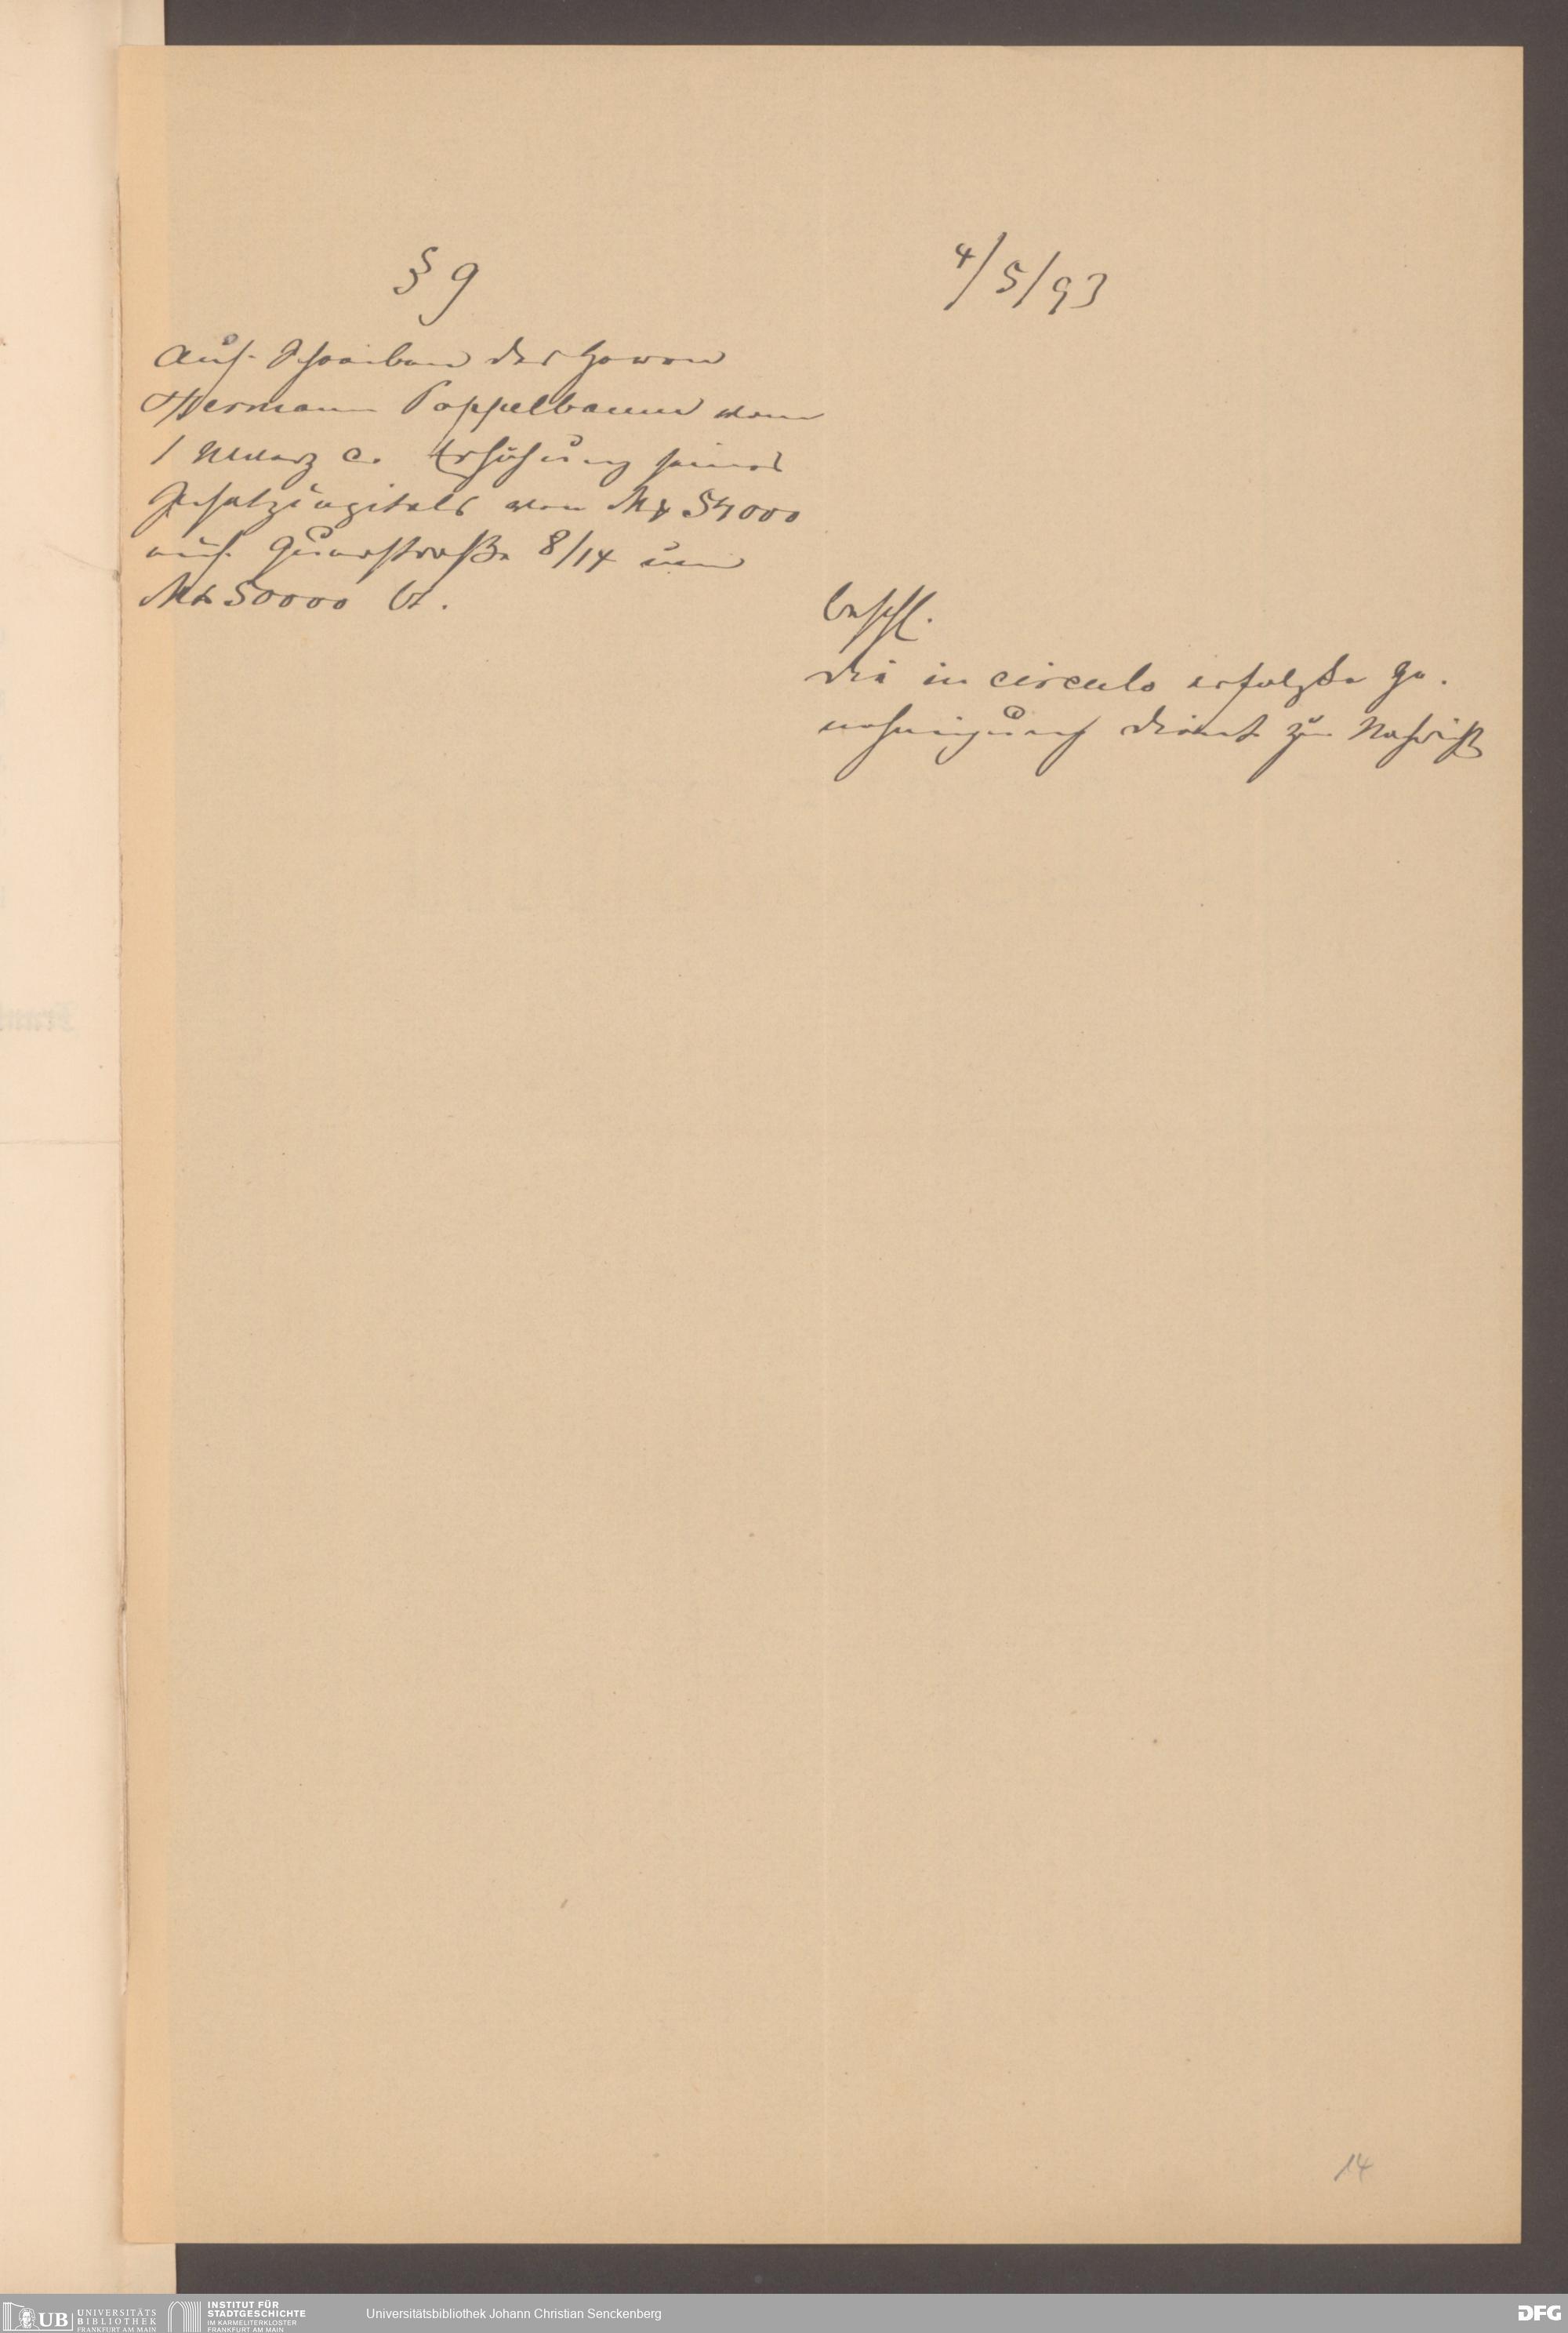 § 9
4/5/93
Auf Schreiben des Herrn
Hermann Poppelbaum vom
1 Maerz c. Erhöhung seines
Insatzcapitals von Mk 54000
auf Querstraße 8/14 um
Mk 50000 btr.
beschl.
die in circulo erfolgte Ge-
nehmigung dient zur Nachricht
14
UB UNIVERSITÄTS
BIBLIOTHEK
FRANKFURT AM MAIN
INSTITUT FÜR
STADTGESCHICHTE
IM KARMELITERKLOSTER
FRANKFURT AM MAIN
Universitätsbibliothek Johann Christian Senckenberg
DFG